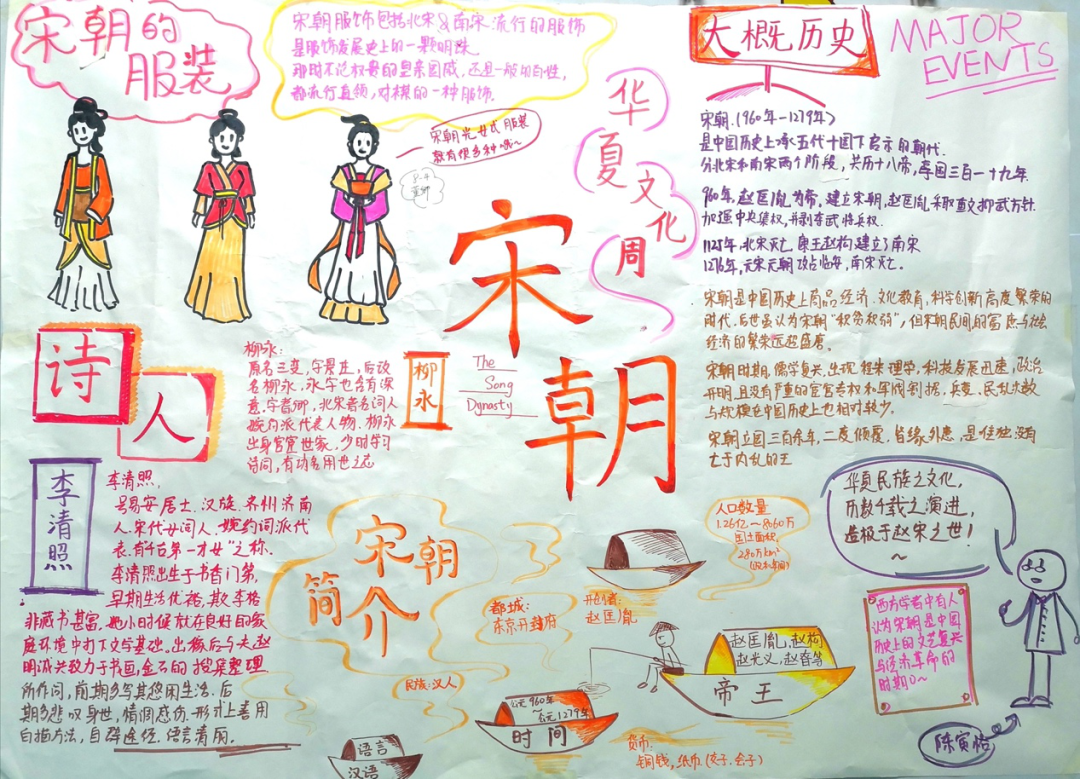 宋朝的
服装
宋朝服饰包括北宋&南宋流行的服饰
是服饰发展史上的一颗明珠
那时不论权贵的皇亲国戚,还是一般的百姓,
都流行直领,对襟的一种服饰.
宋朝光女式服装
就有很多种哦~
华夏文化周
大概历史
MAJOR
EVENTS
宋朝.(960年—1279年)
是中国历史上承五代十国下启元的朝代.
分北宋和南宋两个阶段,共历十八帝,享国三百一十九年
960年,赵匡胤为帝,建立宋朝,赵匡胤采取重文抑武方针.
加强中央集权,并剥夺武将兵权.
1125年,北宋灭亡 康王赵构建立了南宋
1276年,元宋元朝攻占临安,南宋灭亡.
宋朝是中国历史上商品经济.文化教育,科学创新高度繁荣的
时代.后世虽认为宋朝"积贫积弱",但宋朝民间的富庶与社会
经济的繁荣远超盛唐.
宋朝时期,儒学复兴,出现程朱理学,科技发展迅速,政治
开明.且没有严重的宦官专权和军阀割据,兵变、民乱次数
与规模在中国历史上也相对较少.
宋朝立国三百余年,二度倾覆.皆缘外患,是
亡于内乱的王
宋
朝
The
Song
Dynasty
诗
人
柳永
柳永:
原名三变,字景庄,后改
名柳永,永字也含有深
意.字耆卿,北宋著名词人
婉约派代表人物.柳永
出身官宦世家,少时学习
诗词,有功名用世之志
李清照
李清照,
号易安居士.汉族.齐州济南
人.宋代女词人.婉约词派代
表.有"千古第一才女"之称.
李清照出生于书香门第,
早期生活优裕,其父李格
非藏书甚富,她小时候就在良好的家
庭环境中打下文学基础.出嫁后与夫赵
明诚共致力于书画,金石的搜集整理
所作词,前期多写其悠闲生活.后
期多悲叹身世,情调感伤.形式上善用
白描方法,自辟途径.语言清丽.
宋朝
简介
人口数量
1.26亿~8060万
国土面积
280万km²
都城:
东京开封府
开创者:
赵匡胤
民族:汉人
赵匡胤,赵构
赵光义,赵昚等
帝王
公元960年
~
公元1279年
时间
语言
汉语
货币:
铜钱,纸币(交子.会子)
华夏民族之文化,
历数千载之演进,
造极于赵宋之世!
~
西方学者中有人
认为宋朝是中国
历史上的文艺复兴
与经济革命的
时期
陈寅恪